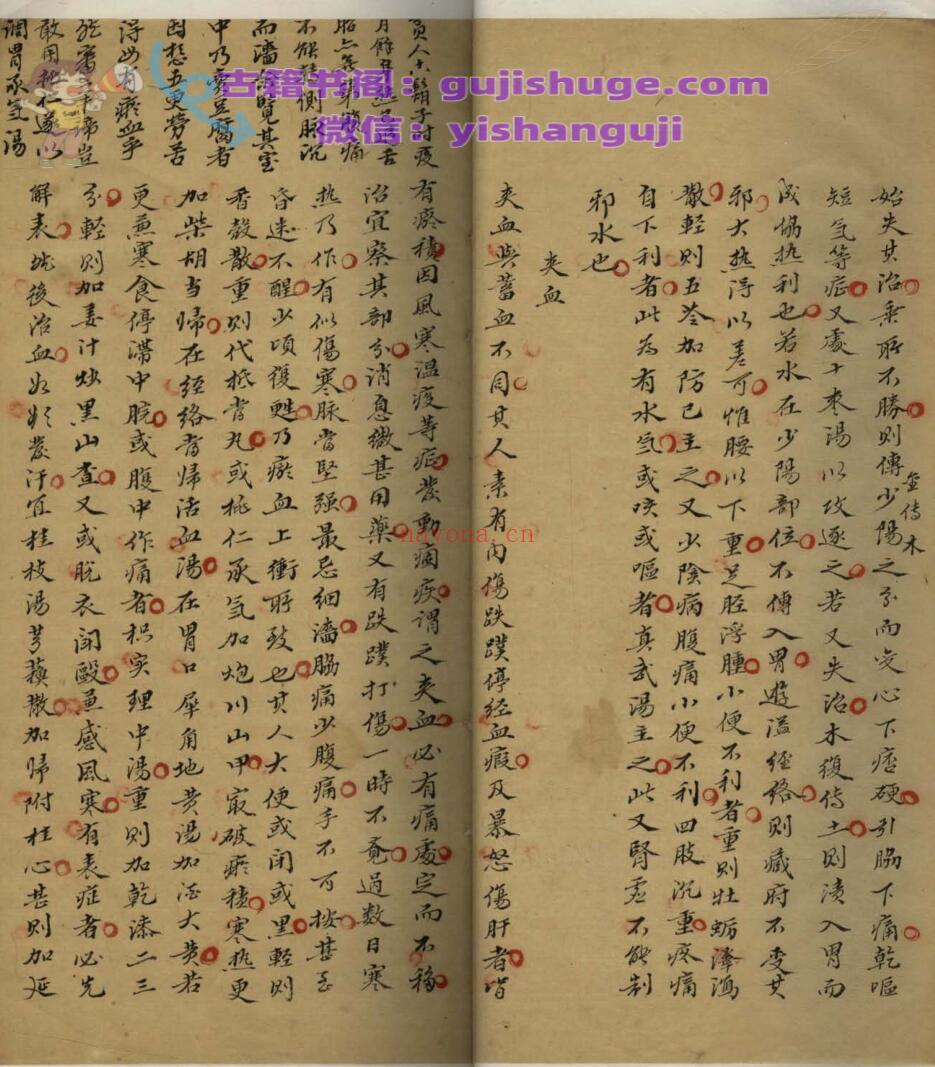 古籍书阁：gujishuge.com
微信：yishanguji
nayona.cn
始失其治乘所不勝則傳少陽之分而爻心下痞硬引脇下痛乾嘔
金侍木
短气等症又處十枣湯以攻逐之若又失治木復侍土則漬入胃而
成協热利也若水在少陽部位不傳入胃遊溢经络則藏府不受其
邪大热得以差可惟腰以下重足胫浮腫小便不利者重則牡蛎澤瀉
散輕則五苓加防己主之又少陰病腹痛小便不利四肢沉重疼痛
自下利者此為有水氣或咳或嘔者真武湯主之此又腎虛不能制
邪水也
夾血
夹血與蓄血不同其人素有內傷跌蹼停经血瘕及暴怒傷肝者皆
有瘀積因風寒温疫等症發動痼疾謂之夾血必有痛處定而不移
治宜察其部分消息微甚用藥又有跌蹼打傷一時不覺過数日寒
热乃作有似傷寒脉當坚强最忌细濇脇痛少腹痛手不可按甚至
昏迷不醒少頃復甦乃瘀血上衝所致也其人大便或闭或黑輕則
香殼散重則代抵當丸或桃仁承气加炮川山甲最破瘀積寒热更
加柴胡當归在经络當归活血湯在胃口犀角地黄湯加酒大黄若
更兼寒食停滞中脘或腹中作痛者枳实理中湯重則加乾漆二三
分輕則加姜汁炒黑山查又或脫衣闭毆兼感風寒有表症者必先
解表然後治血如欲發汗宜桂枝湯芎蘇散加归附桂心甚則加延
員人十八胡子时疫
月餘
胎六 痛
不能 侧脉沉
而濇 覽其室
中乃 豆腐者
因想五更劳苦
得毋有瘀血乎
豈
敢用桃仁遂以
调胃承气湯